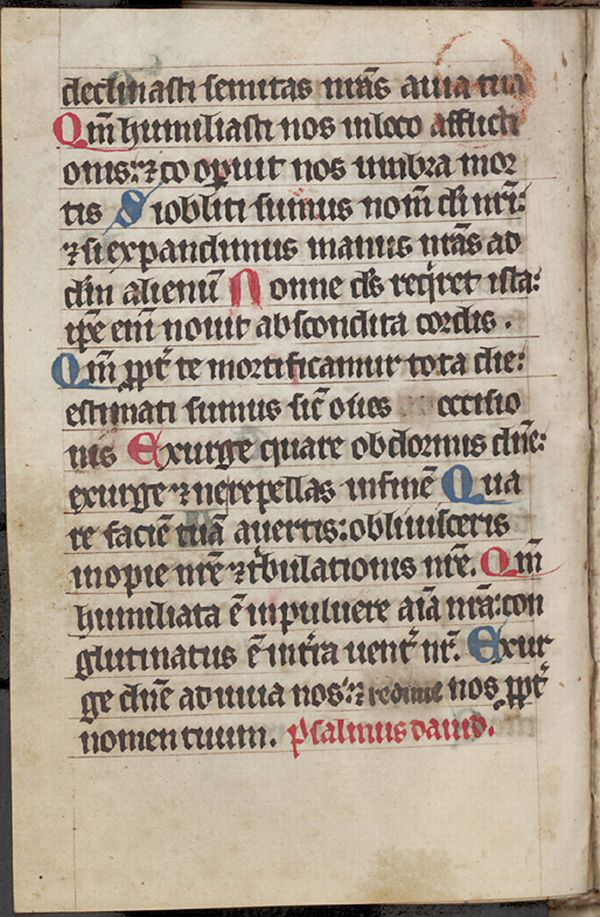 declinasti semitas nr̄as a uia tua
Qm̄ humiliasti nos in loco afflicti
onis: ⁊ co opuit nos umbra mor
tis Si obliti sumus nom̄ dī nr̄i:
⁊ si expandimus manus nr̄as ad
dm̄ alienū Nonne ds̄ reqͥret ista:
ip̄e enī nouit abscondita cordis.
Qm̄ ꝓpt̄ te mortificamur tota die:
estimati sumus sic̄ oues occisio
nis Exurge quare obdormis dn̄e:
exurge ⁊ ne repellas in finē Qua
re faciē tuā auertis: obliuisceris
inopie nr̄e ⁊ tͥbulationis nr̄e. Qm̄
humiliata ē in puluere aīa nr̄a: con
glutinatus ē in tr̄ra uent̄ nr̄. Exur
ge dn̄e adiuua nos: ⁊ redime nos ꝓpt̄
nomen tuum. Psalmus dauid.